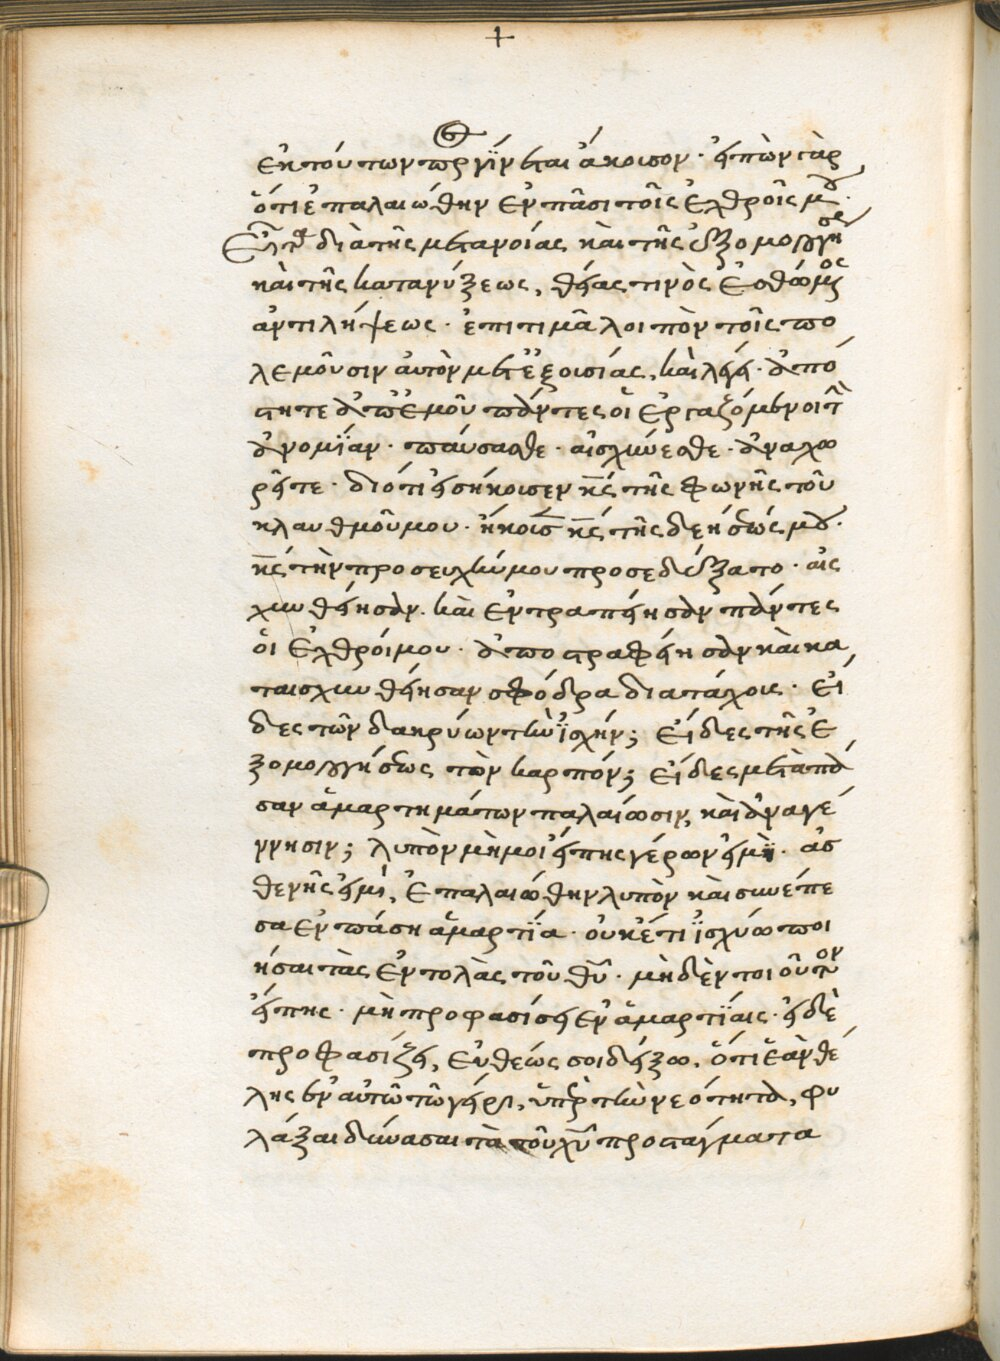 +
ἐκ τούτων τί γίνεται ἄκουσον· εἰπὼν γὰρ
ὅτι ἐπαλαιώθην ἐν πᾶσι τοῖς ἐχθροῖς μου·
διὰ τῆς μετανοίας καὶ τῆς ἐξομολογήσεως
καὶ τῆς κατανύξεως, θείας τινὸς αἰσθόμενος
ἀντιλήψεως· ἐπιτιμᾶ λοιπὸν τοῖς πο
λεμοῦσιν αὐτὸν μετ' ἐξουσίας, καὶ λέγει· ἀπό
στητε ἀπ' ἐμοῦ πάντες οἱ ἐργαζόμενοι τὴν
ἀνομΐαν· παύσασθε· αἰσχύνεσθε· ἀναχω
ρεῖτε· διότι εἰσήκουσεν κς τῆς φωνῆς τοῦ
κλαυθμοῦ μου· ἤκουσε κς τῆς δεήσεώς μου·
κς τὴν προσευχήν μου προσεδέξατο· αἰς
χυνθείησαν· καὶ ἐντραπείησαν πάντες
οἱ ἐχθροί μου· ἀποστραφείησαν καὶ κα
ταισχυνθείησαν σφόδρα διατάχους· εἶ
δες τῶν δακρύων τὴν ἰσχύν; εἶδες τῆς ἐ
ξομολογήσεως τὸν καρπόν; εἶδες μετὰ πᾶ
σαν ἁμαρτημάτων παλαίωσιν, καὶ ἀναγέ
ννησιν; λυπὸν μὴ μοὶ εἴπης γέρων εἰμὶ· ἀσ
θενὴς εἰμὶ, ἐπαλαιώθην λυπὸν καὶ συνέπε
σα ἐν πάση ἁμαρτΐα· οὐκέτι ἰσχύω ποι
ήσαι τὰς ἐντολὰς τοῦ θυ· μηδὲν τοιοῦτον
εἴπης· μὴ προφασίση ἐν ἁμαρτΐαις· εἰ δὲ
προφασίζει, εὐθέως σοι δείξω, ὅτι ἐὰν θέ
λης ἐν αὐτῶ τῶ γήρει, ὑπὲρ τὴν νεότητα, φυ
λάξαι δύνασαι τὰ τοῦ χυ προστάγματα